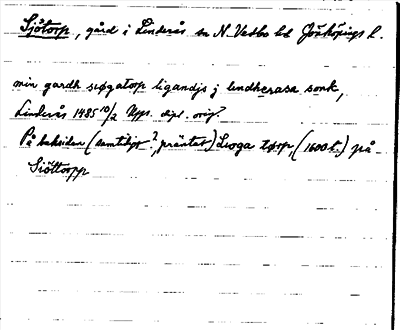 Sjötorp, gård i Linderås sn N. Vedbo hd Jönköpings l.
min gardh siøgatorp ligandjs j lindherasa sonk,
Linderås 1485 10/2 Upps. dipl. orig.
På baksidan (samtidigt?, präntat) Sioga tørp, (1600 t.) på
Siöttorpp